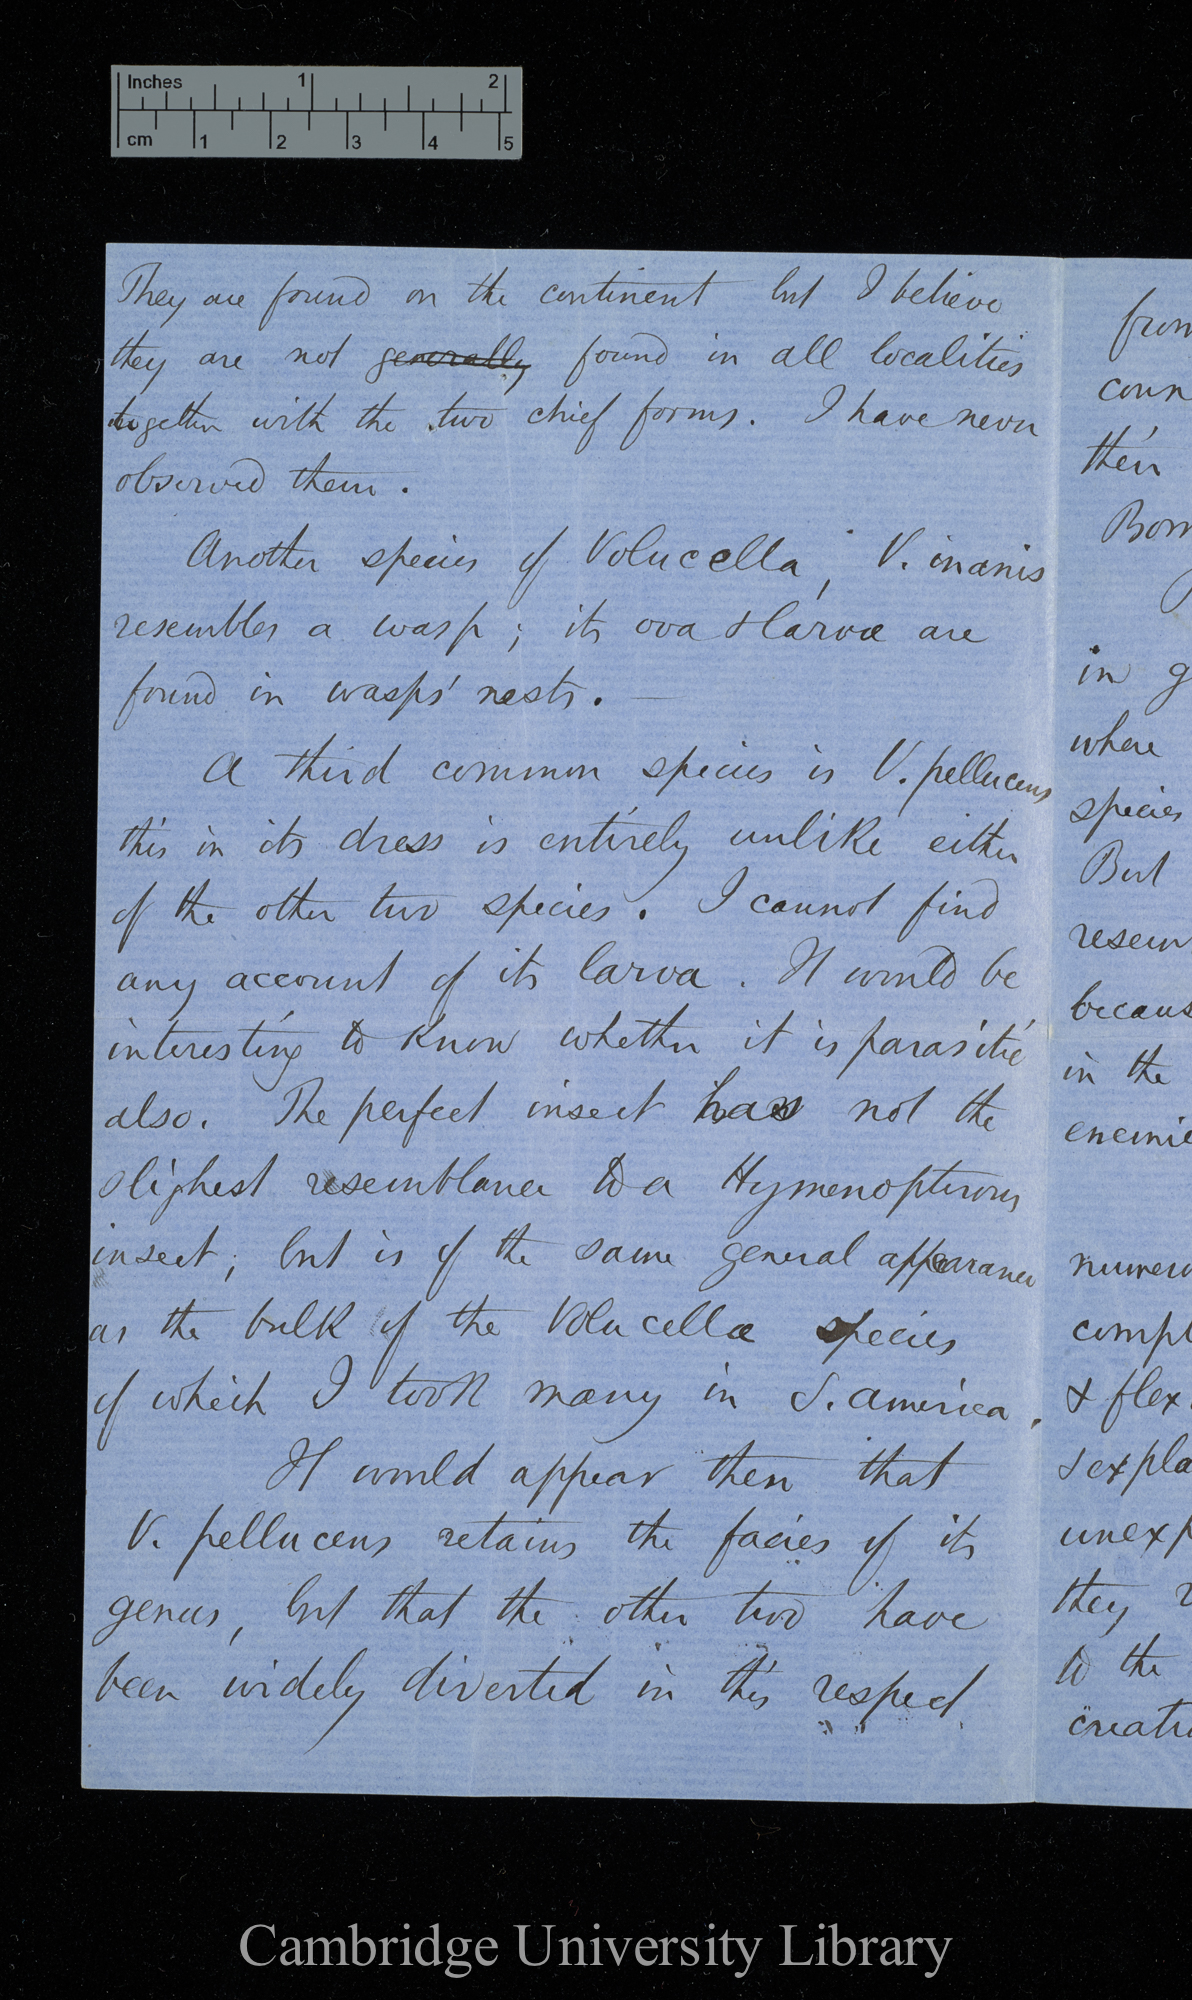 Inches 1 2
cm 1 2 3 4 5
They are found on the continent but I believe
they are not generally found in all localities
together with the two chief forms. I have never
observed them.
Another species of Volucella, V. inanis
resembles a wasp; its ova & larvæ are
found in wasps' nests. —
A third common species is V. pellucens
this in its dress is entirely unlike either
of the other two species. I cannot find
any account of its larva. It would be
interesting to know whether it is parasitic
also. The perfect insect has not the
slighest resemblance to a Hymenopterous
insect; but is of the same general appearance
as the bulk of the Volucellæ species
of which I took many in S. America.
It would appear then that
V. pellucens retains the facies of its
genus, but that the other two have
been widely diverted in this respect
from
coun
then
Bom
in g
where
species
But
resem
becaus
in the
enemie
numero
compl
& flex
& expla
unexp
they r
to the
creatu
Cambridge University Library